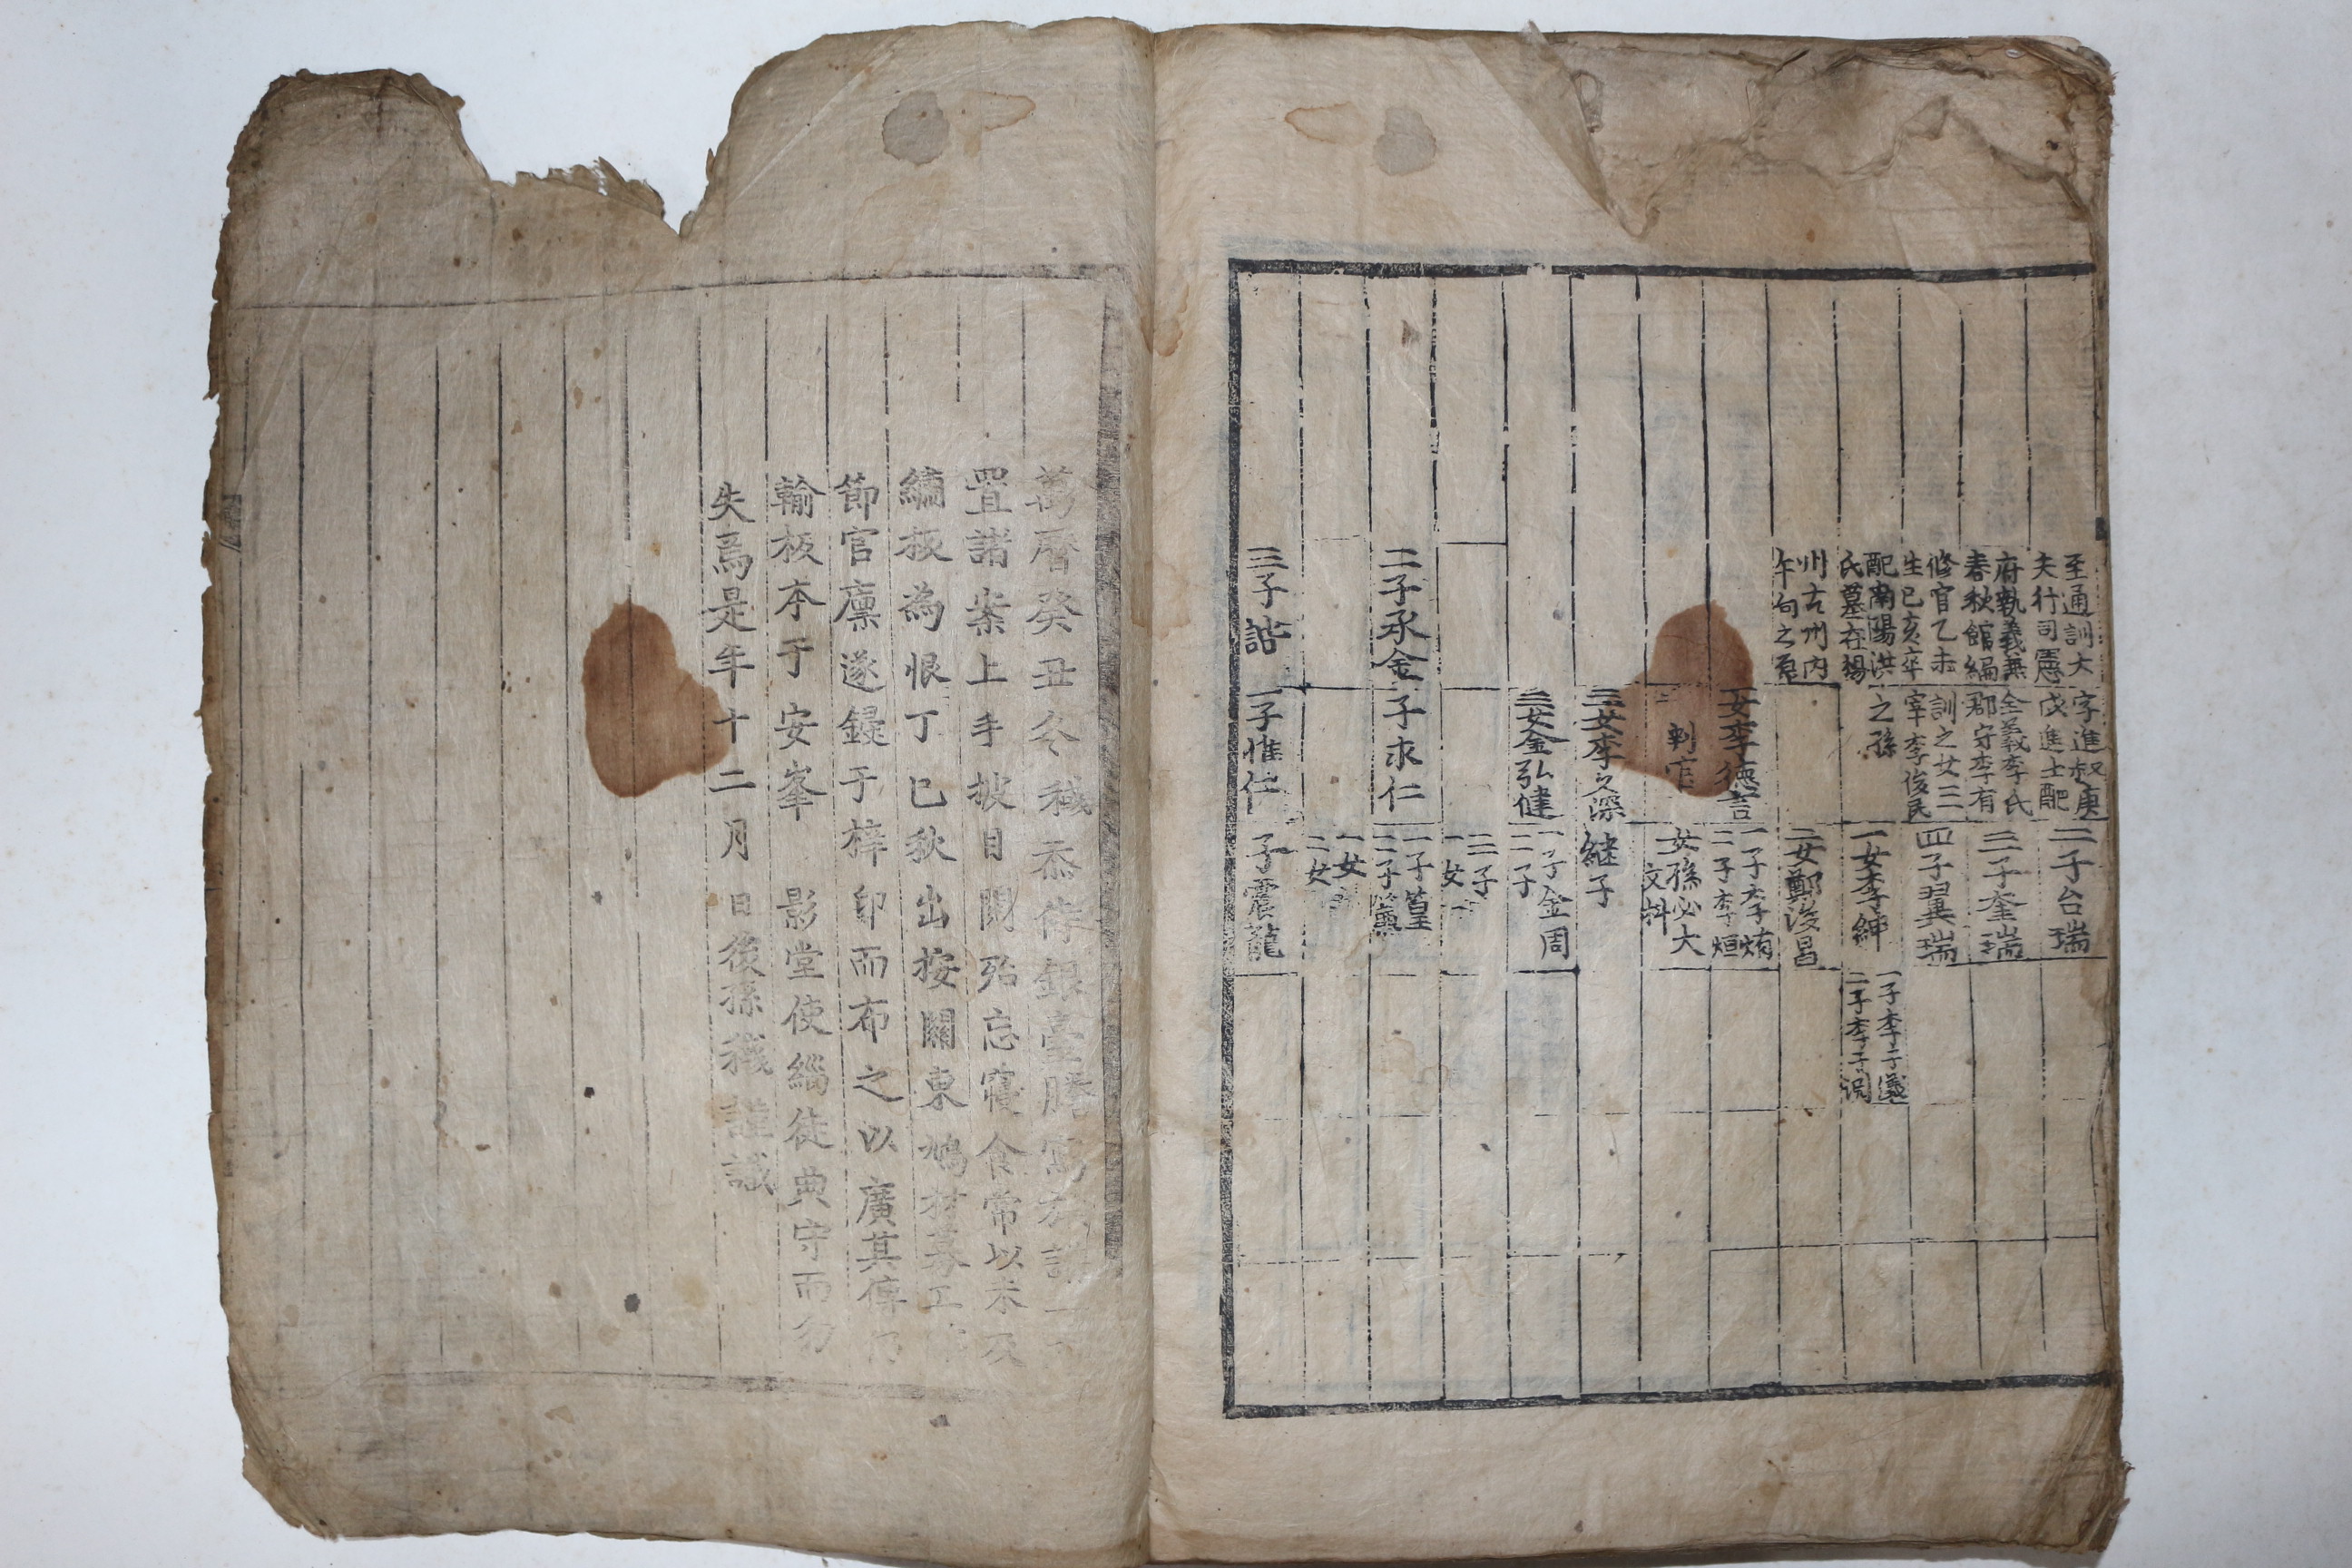 至通訓大
夫行司憲
府執義兼
春秋館編
修官乙未
生己亥卒
配南陽洪
氏墓在楊
州古州內
午向之原
字進叔庚
戌進士配
全義李氏
郡守李有
訓之女三
宰李俊民
之孫
二子台瑞
三子奎瑞
四子翼瑞
一女李紳
一子李子
二子李子
二女鄭浚昌
女李德言
一子李
二子李烜
判官
女孫必大
文科
三女李久深
継子
三女金弘健
一子金周
二子
三子
一女
二子承金
子求仁
一子篁
二子
一女
二女
三子諧
一子惟仁
子震龍
萬曆癸丑今 忝 銀臺謄寫
置諸案上手披目閱殆忘寢食常以未及
繡板為恨丁巳秋出按關東鳩材募工
節官廩遂錄于梓印而布之以廣其傳
輸板本于安峯 影堂使緇徒典守而勿
失焉是年十二月日後孫 謹識